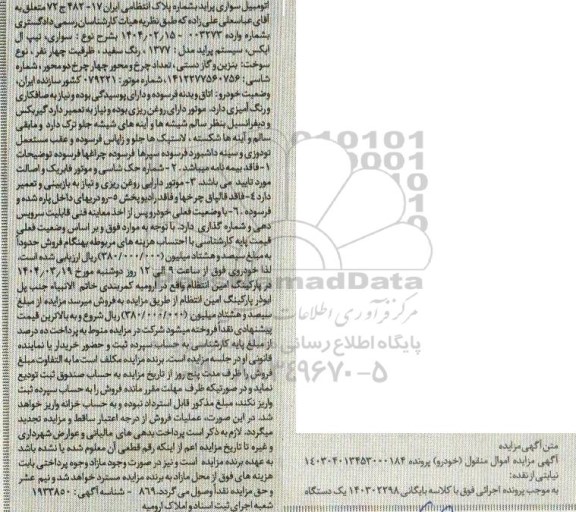 متن آگهی مزایده
آگهی مزایده اموال منقول (خودرو) پرونده ۱۴۰۳۰۴۰۱۳۴۵۳۰۰۰۱۸۴
نیابتی از نقده:
به موجب پرونده اجرائی فوق با کلاسه بایگانی ۱۴۰۳۰۲۲۹۸ یک دستگاه
اتومبیل سواری پراید بشماره پلاک انتظامی ایران ۱۷-۴۸۲ ج ۷۲ متعلق به
آقای عباسعلی علی زاده که طبق نظریه هیات کارشناسان رسمی دادگستری
بشماره وارده ۰۰۳۲۷۳ - ۱۴۰۴/۰۲/۱۵ بشرح نوع : سواری، تیپ ال
ایکس، سیستم پراید مدل : ۱۳۷۷ ، رنگ سفید ، ظرفیت چهار نفر ، نوع
سوخت: بنزین و گاز دستی ، تعداد چرخ و محور چهار چرخ دو محور، شماره
شاسی: ۱۴۱۲۲۷۷۵۶۰۷۵۶، شماره موتور: ۰۷۹۲۲۱ کشور سازنده ایران،
وضعیت خودرو : اتاق و بدنه فرسوده و دارای پوسیدگی بوده و نیاز به صافکاری
و رنگ آمیزی دارد. موتور دارای روغن ریزی بوده و نیاز به تعمیر دارد گیربکس
و دیفرانسیل بنظر سالم شیشه ها و آینه های شیشه جلو ترک دارد و مابقی
سالم و آینه‌ها شکسته ، لاستیک ها جلو و زاپاس فرسوده و عقب مستعمل
تودوزی و سینه داشبورد فرسوده سپرها فرسوده چراغها فرسوده توضیحات
۱- فاقد بیمه نامه میباشد. ۲- شماره حک شاسی و موتور فابریک و اصالت
مورد تایید می باشند. ۳- موتور دارایی روغن ریزی و نیاز به بازبینی و تعمیر
دارد ۴- فاقد قالپاق چرخها و فاقد رادیو پخش ۵- رودریهای داخل پاره شده و
فرسوده . ۶- با وضعیت فعلی خودرو پس از اخذ معاینه فنی قابلیت سرویس
دهی و شماره گذاری دارد. با توجه به موارد فوق و بر اساس وضعیت فعلی
قیمت پایه کارشناسی با احتساب هزینه های مربوطه بهنگام فروش حدوداً
به مبلغ سیصد و هشتاد میلیون (۳۸۰/۰۰۰/۰۰۰) ریال ارزیابی شده است.
لذا خودروی فوق از ساعت ۹ الی ۱۲ روز دوشنبه مورخ ۱۴۰۴/۰۳/۱۹
در پارکینگ امین انتظام واقع در ارومیه کمربندی خاتم الانبیاء جنب پل
ابوذر پارکینگ امین انتظام از طریق مزایده به فروش میرسد مزایده از مبلغ
سیصد و هشتاد میلیون (۳۸۰/۰۰۰/۰۰۰) ریال شروع و به بالاترین قیمت
پیشنهادی نقداً فروخته میشود شرکت در مزایده منوط به پرداخت ده درصد
از مبلغ پایه کارشناسی به حساب سپرده ثبت و حضور خریدار یا نماینده
قانونی او در جلسه مزایده است. برنده مزایده مکلف است ما به التفاوت مبلغ
فروش را ظرف مدت پنج روز از تاریخ مزایده به حساب صندوق ثبت تودیع
نماید و در صورتیکه ظرف مهلت مقرر مانده فروش را به حساب سپرده ثبت
واریز نکند، مبلغ مذکور قابل استرداد نبوده و به حساب خزانه واریز خواهد
شد. در این صورت، عملیات فروش از درجه اعتبار ساقط و مزایده تجدید
میگردد. لازم به ذکر است پرداخت بدهی های مالیاتی و عوارض شهرداری
و غیره تا تاریخ مزایده اعم از اینکه رقم قطعی آن معلوم شده یا نشده باشد
به عهده برنده مزایده است و نیز در صورت وجود مازاد وجوه پرداختی بابت
هزینه های فوق از محل مازاد به برنده مزایده مسترد خواهد شد و نیم عشر
و حق مزایده نقداً وصول می گردد. ۸۶۹ - شناسه آگهی: ۱۹۳۳۸۵۰
شعبه اجرای ثبت اسناد و املاک ارومیه
مرکز فرآوری اطلاعات
پایگاه اطلاع رسانی
۳۴۹۶۷۰-۵